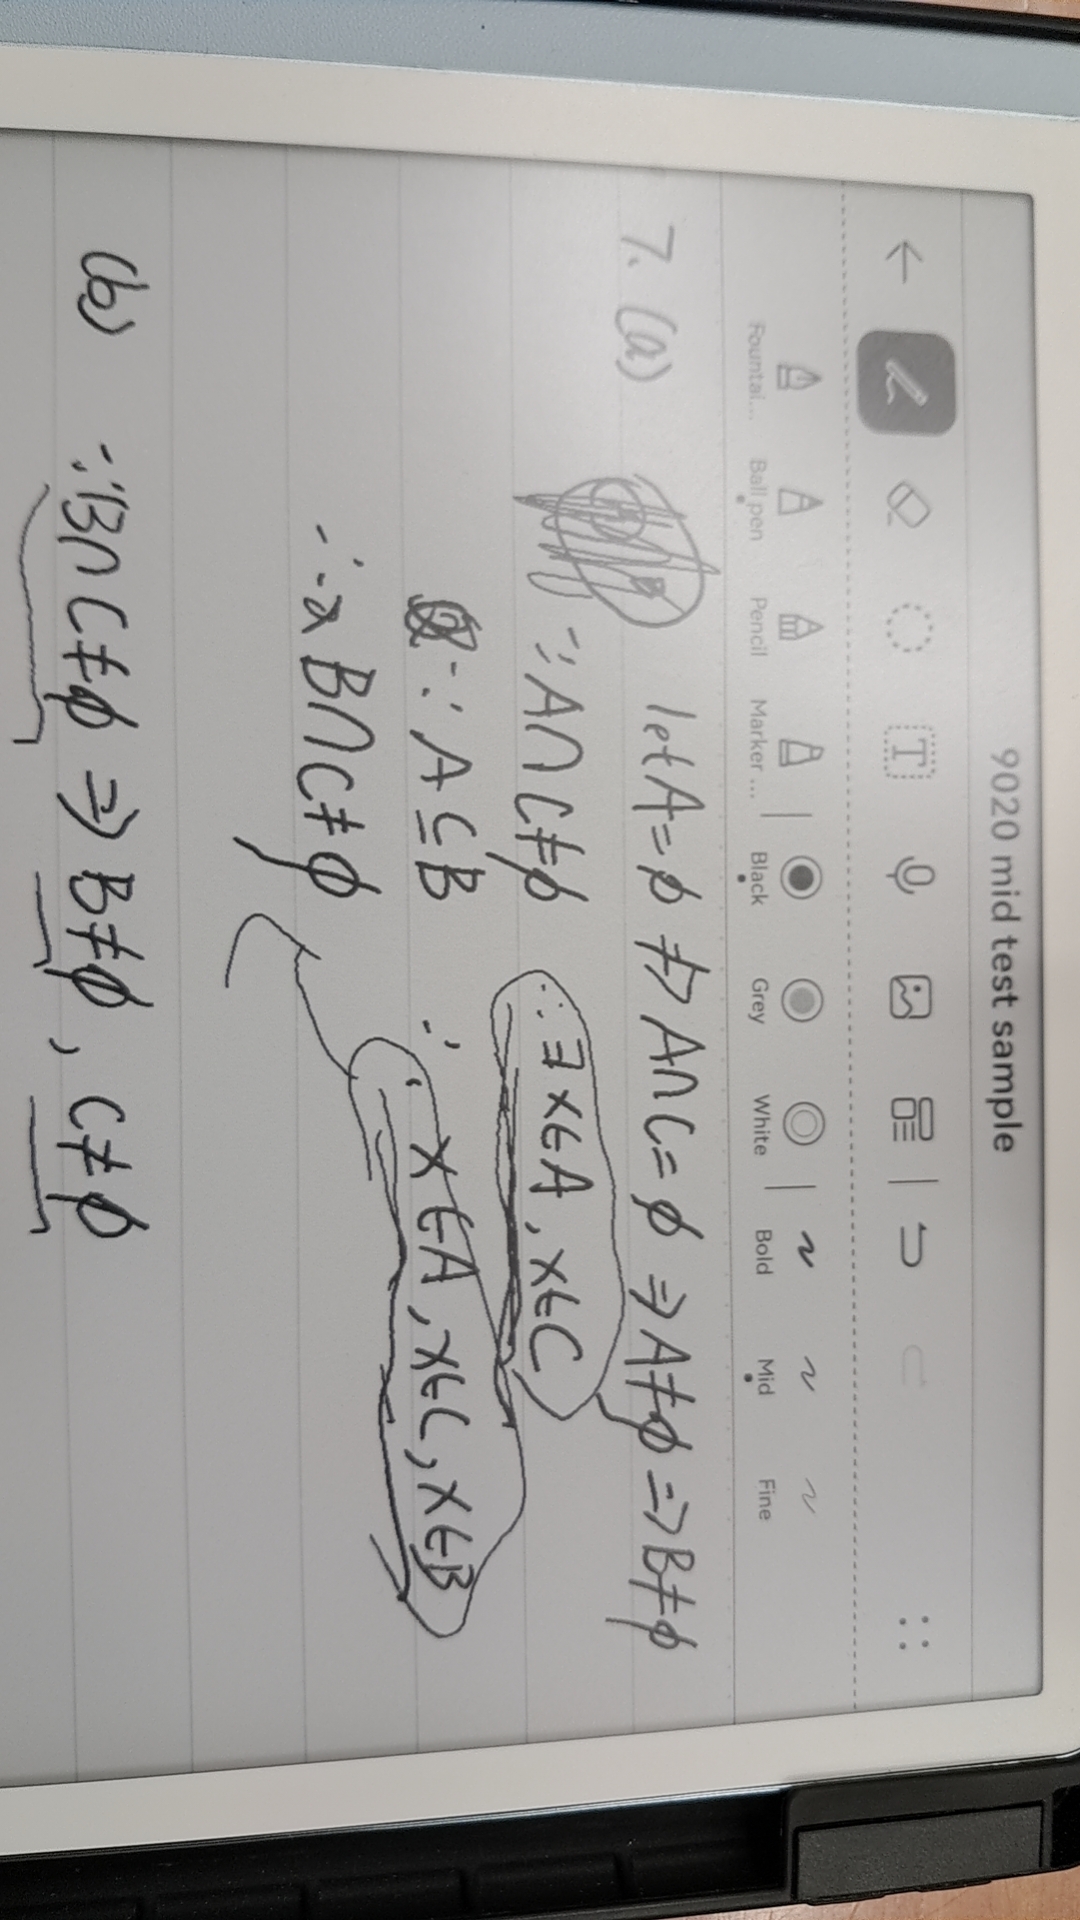 9020 mid test sample
T
Fountai... Ball pen Pencil Marker ... Black Grey White Bold Mid Fine
7. (a) let A = ϕ ⇏ A∩C = ϕ ⇒ A≠ϕ ⇒ B≠ϕ
∵ A∩C≠ϕ ∴ ∃ x∈A, x∈C
∵ A⊆B ∴ x∈A, x∈C, x∈B
∴ B∩C≠ϕ
(b) ∵ B∩C≠ϕ ⇒ B≠ϕ, C≠ϕ